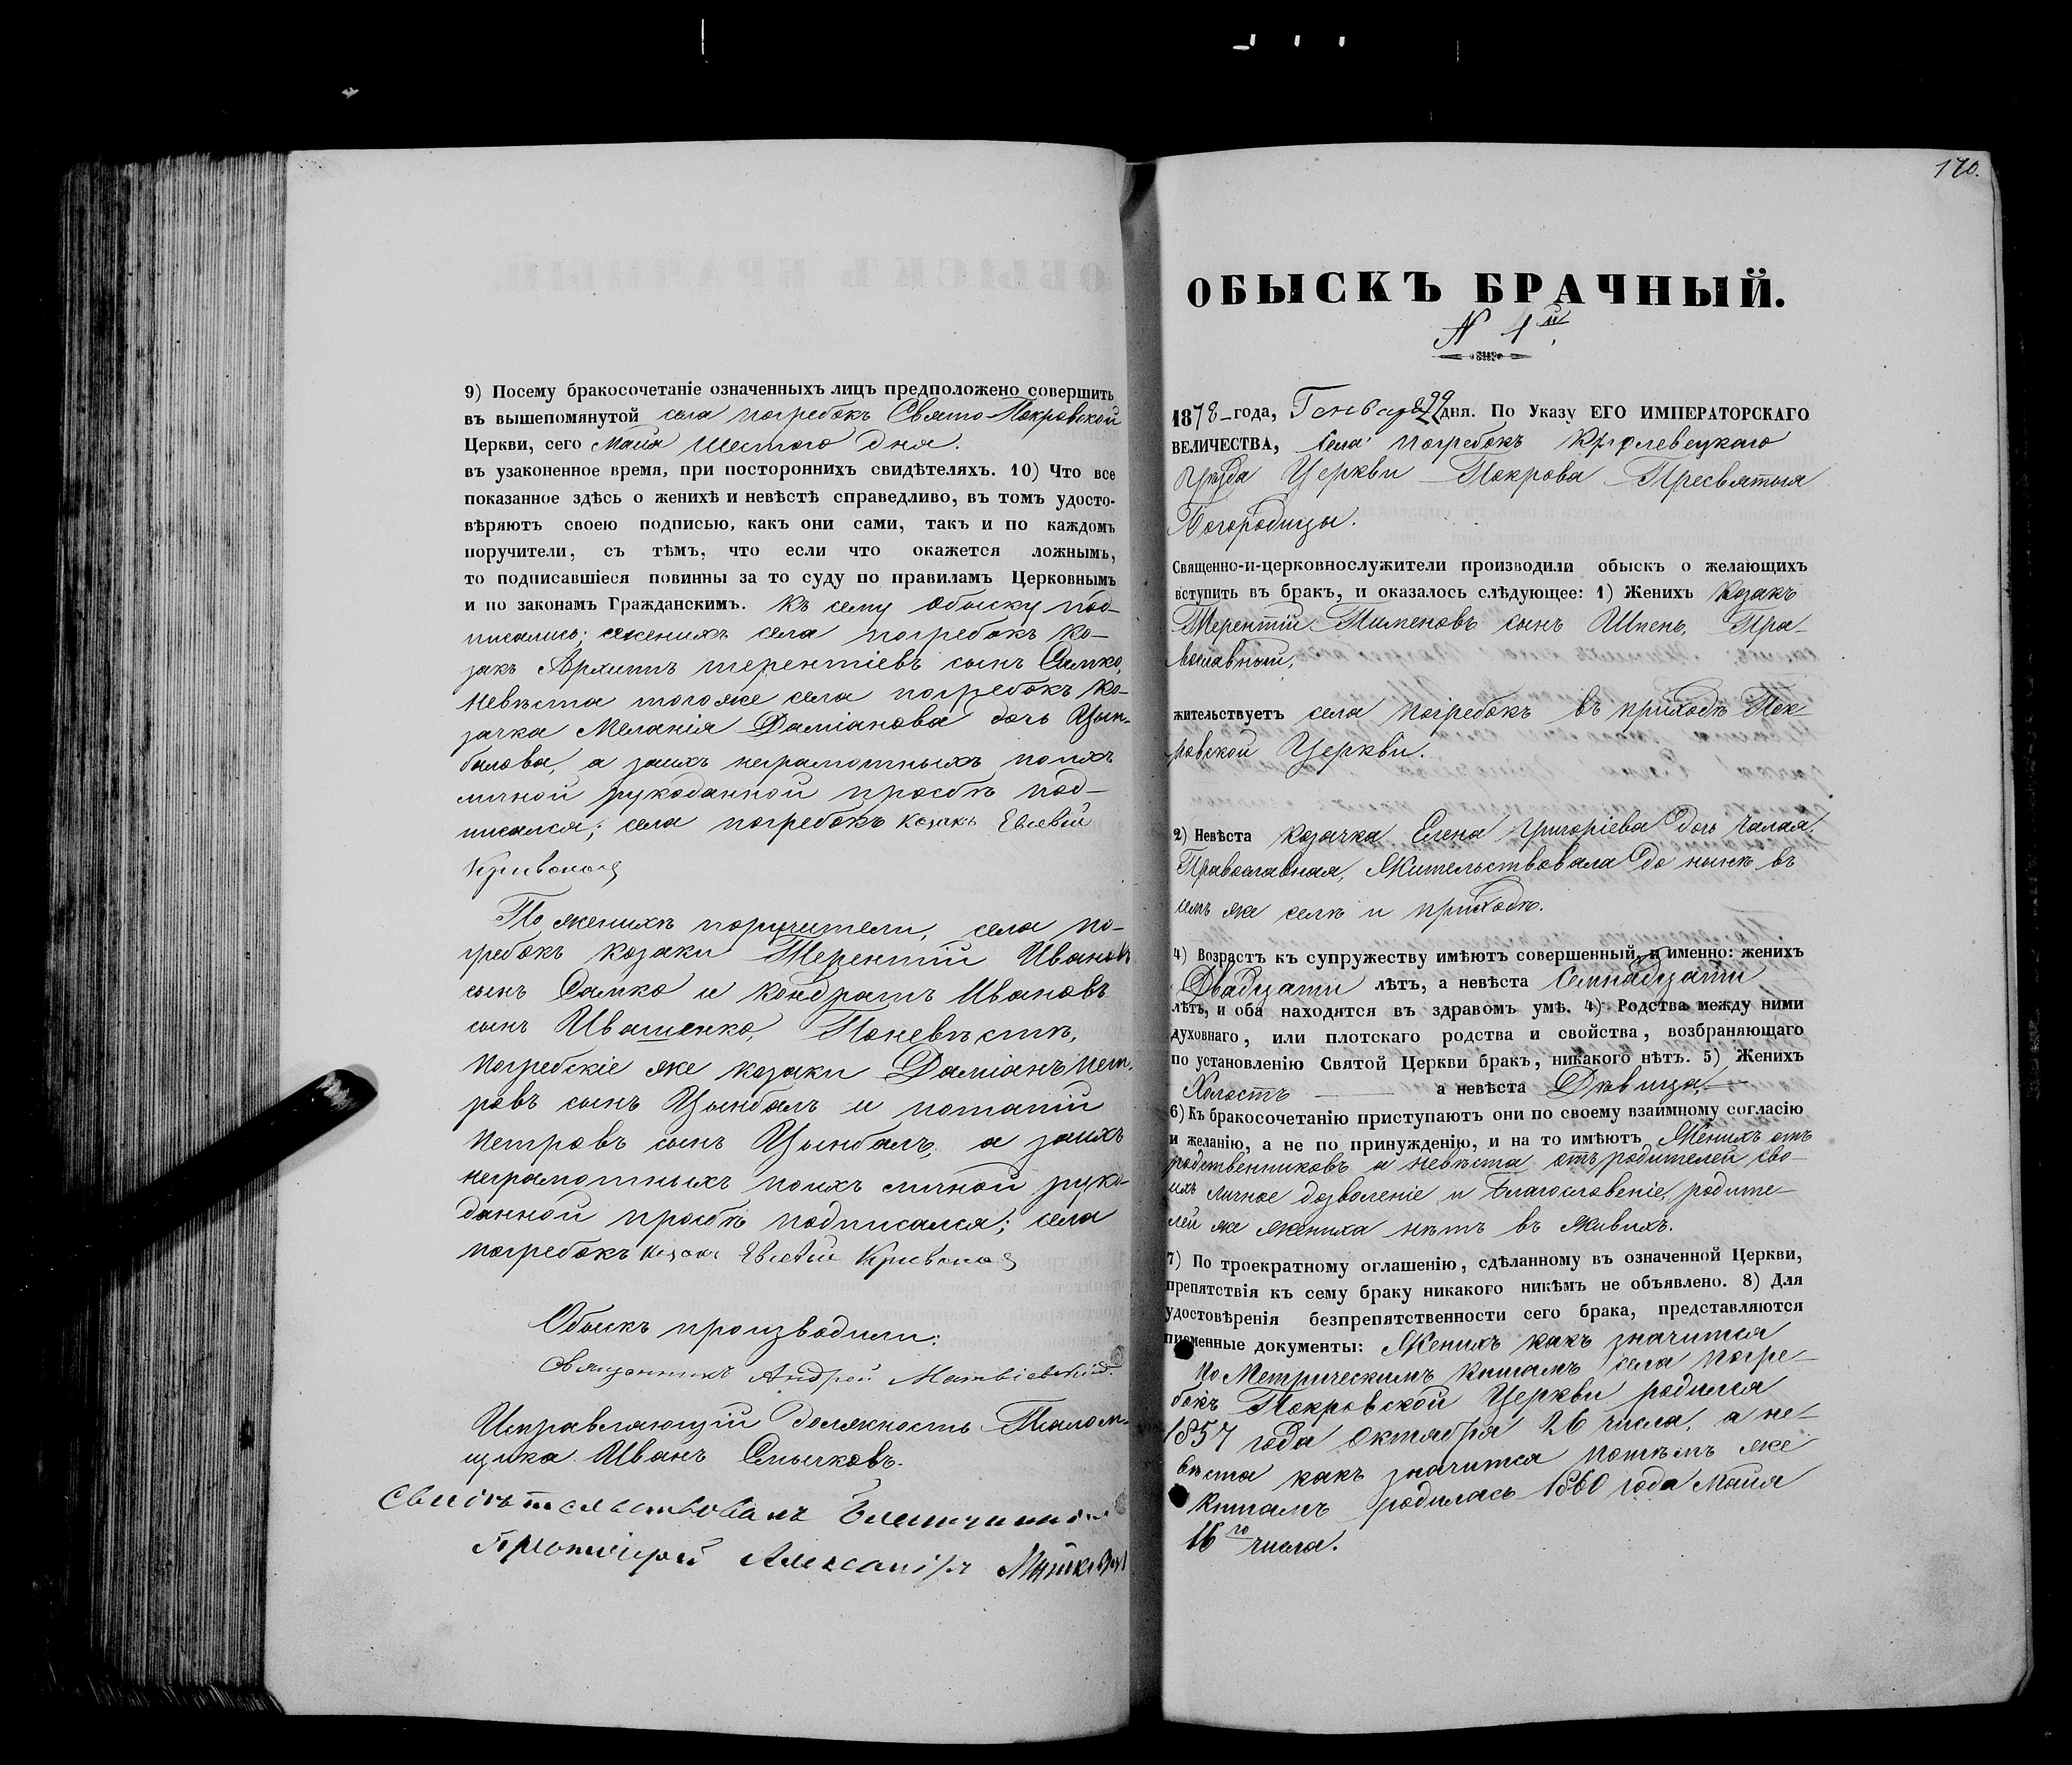 9) Посему бракосочетаніе означенныхъ лицъ предположено совершить
въ вышепомянутой села погребокъ Свято-Покровской
Церкви, сего Маія Шестого дня.
въ узаконенное время, при постороннихъ свидѣтеляхъ. 10) Что все
показанное здѣсь о женихѣ и невѣстѣ справедливо, въ томъ удосто-
вѣряютъ своею подписью, какъ они сами, такъ и по каждомъ
поручители, съ тѣмъ, что если что окажется ложнымъ,
то подписавшіеся повинны за то суду по правиламъ Церковнымъ
и по законамъ Гражданскимъ. Къ сему обыску под-
писались: женихъ села погребокъ ко-
закъ Архипъ терентіевъ сынъ Самко,
Невѣста тогоже села погребокъ ко-
зачка Меланія Даміанова дочь Цын-
балова, а заихъ неграмотныхъ поихъ
личной рукоданной прозбѣ под-
писался; села погребокъ козакъ Евсевій
По женихѣ поручители, села по-
гребокъ козаки Терентій Ивановъ
сынъ Самко и Кондратъ Ивановъ
сынъ Ивашенко, Поневѣстѣ,
погребскіе же козаки Даміанъ Пет-
ровъ сынъ Цынбалъ и потапій
Петровъ сынъ Цынбалъ, а заихъ
неграмотныхъ поихъ личной руко-
данной прозбѣ подписался; села
погребокъ козакъ Евсевій
Обыскъ производили:
Священникъ Андрей Матвіевскій.
Исправляющій должность Псалом-
щика Иванъ Смычковъ.
Свидѣтельствовалъ Благочинный
Протоіерей Александръ
170.
ОБЫСКЪ БРАЧНЫЙ.
N 1й
1878-года, Генваря 29 дня. По Указу ЕГО ИМПЕРАТОРСКАГО
ВЕЛИЧЕСТВА, села погребокъ Кролевецкаго
Уѣзда Церкви Покрова Пресвятыя
Богородицы.
Священно-и-церковнослужители производили обыскъ о желающихъ
вступить въ бракъ, и оказалось слѣдующее: 1) Женихъ Козакъ
Терентій Пименовъ сынъ Шпень, Пра-
вославный,
жительствуетъ села погребокъ въ приходѣ Пок-
ровской Церкви.
2) Невѣста козачка Елена Григоріева дочь Чалая,
Православная, Жительствовала до нынѣ въ
семъ же селѣ и приходѣ.
4) Возрастъ къ супружеству имѣютъ совершенный, и именно: женихъ
Двадцати лѣтъ, а невѣста Семнадцати
лѣтъ, и оба находятся въ здравомъ умѣ. 4) Родства между ними
духовнаго, или плотскаго родства и свойства, возбраняющаго
по установленію Святой Церкви бракъ, никакого нѣтъ. 5) Женихъ
Холостъ а невѣста Дѣвица,
6) Къ бракосочетанію приступаютъ они по своему взаимному согласію
и желанію, а не по принужденію, и на то имѣютъ Женихъ отъ
родственниковъ а невѣста отъ родителей сво-
ихъ личное дозволеніе и благословеніе, родите-
лей же жениха нѣтъ въ живихъ.
7) По троекратному оглашенію, сдѣланному въ означенной Церкви,
препятствія къ сему браку никакого никѣмъ не объявлено. 8) Для
удостовѣренія безпрепятственности сего брака, представляются
письменные документы: Женихъ какъ значится
По Метрическимъ книгамъ села погре-
бокъ Покровской Церкви родился
1857 года Октября 26 числа, а не-
вѣста какъ значится потѣмъ же
книгамъ родилась 1860 года Маія
16го числа.